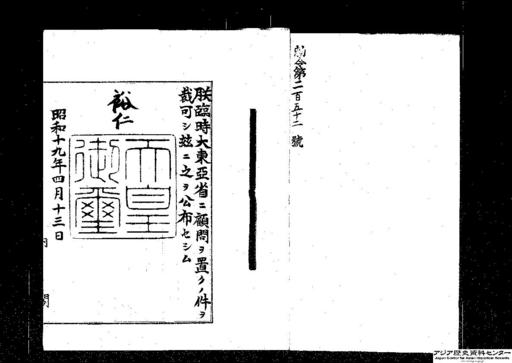 勅令第二百五十二號
朕臨時大東亞省ニ顧問ヲ置クノ件ヲ
裁可シ玆ニ之ヲ公布セシム
裕仁
天皇
御璽
昭和十九年四月十三日
内閣
アジア歴史資料センター
Japan Center for Asian Historical Records